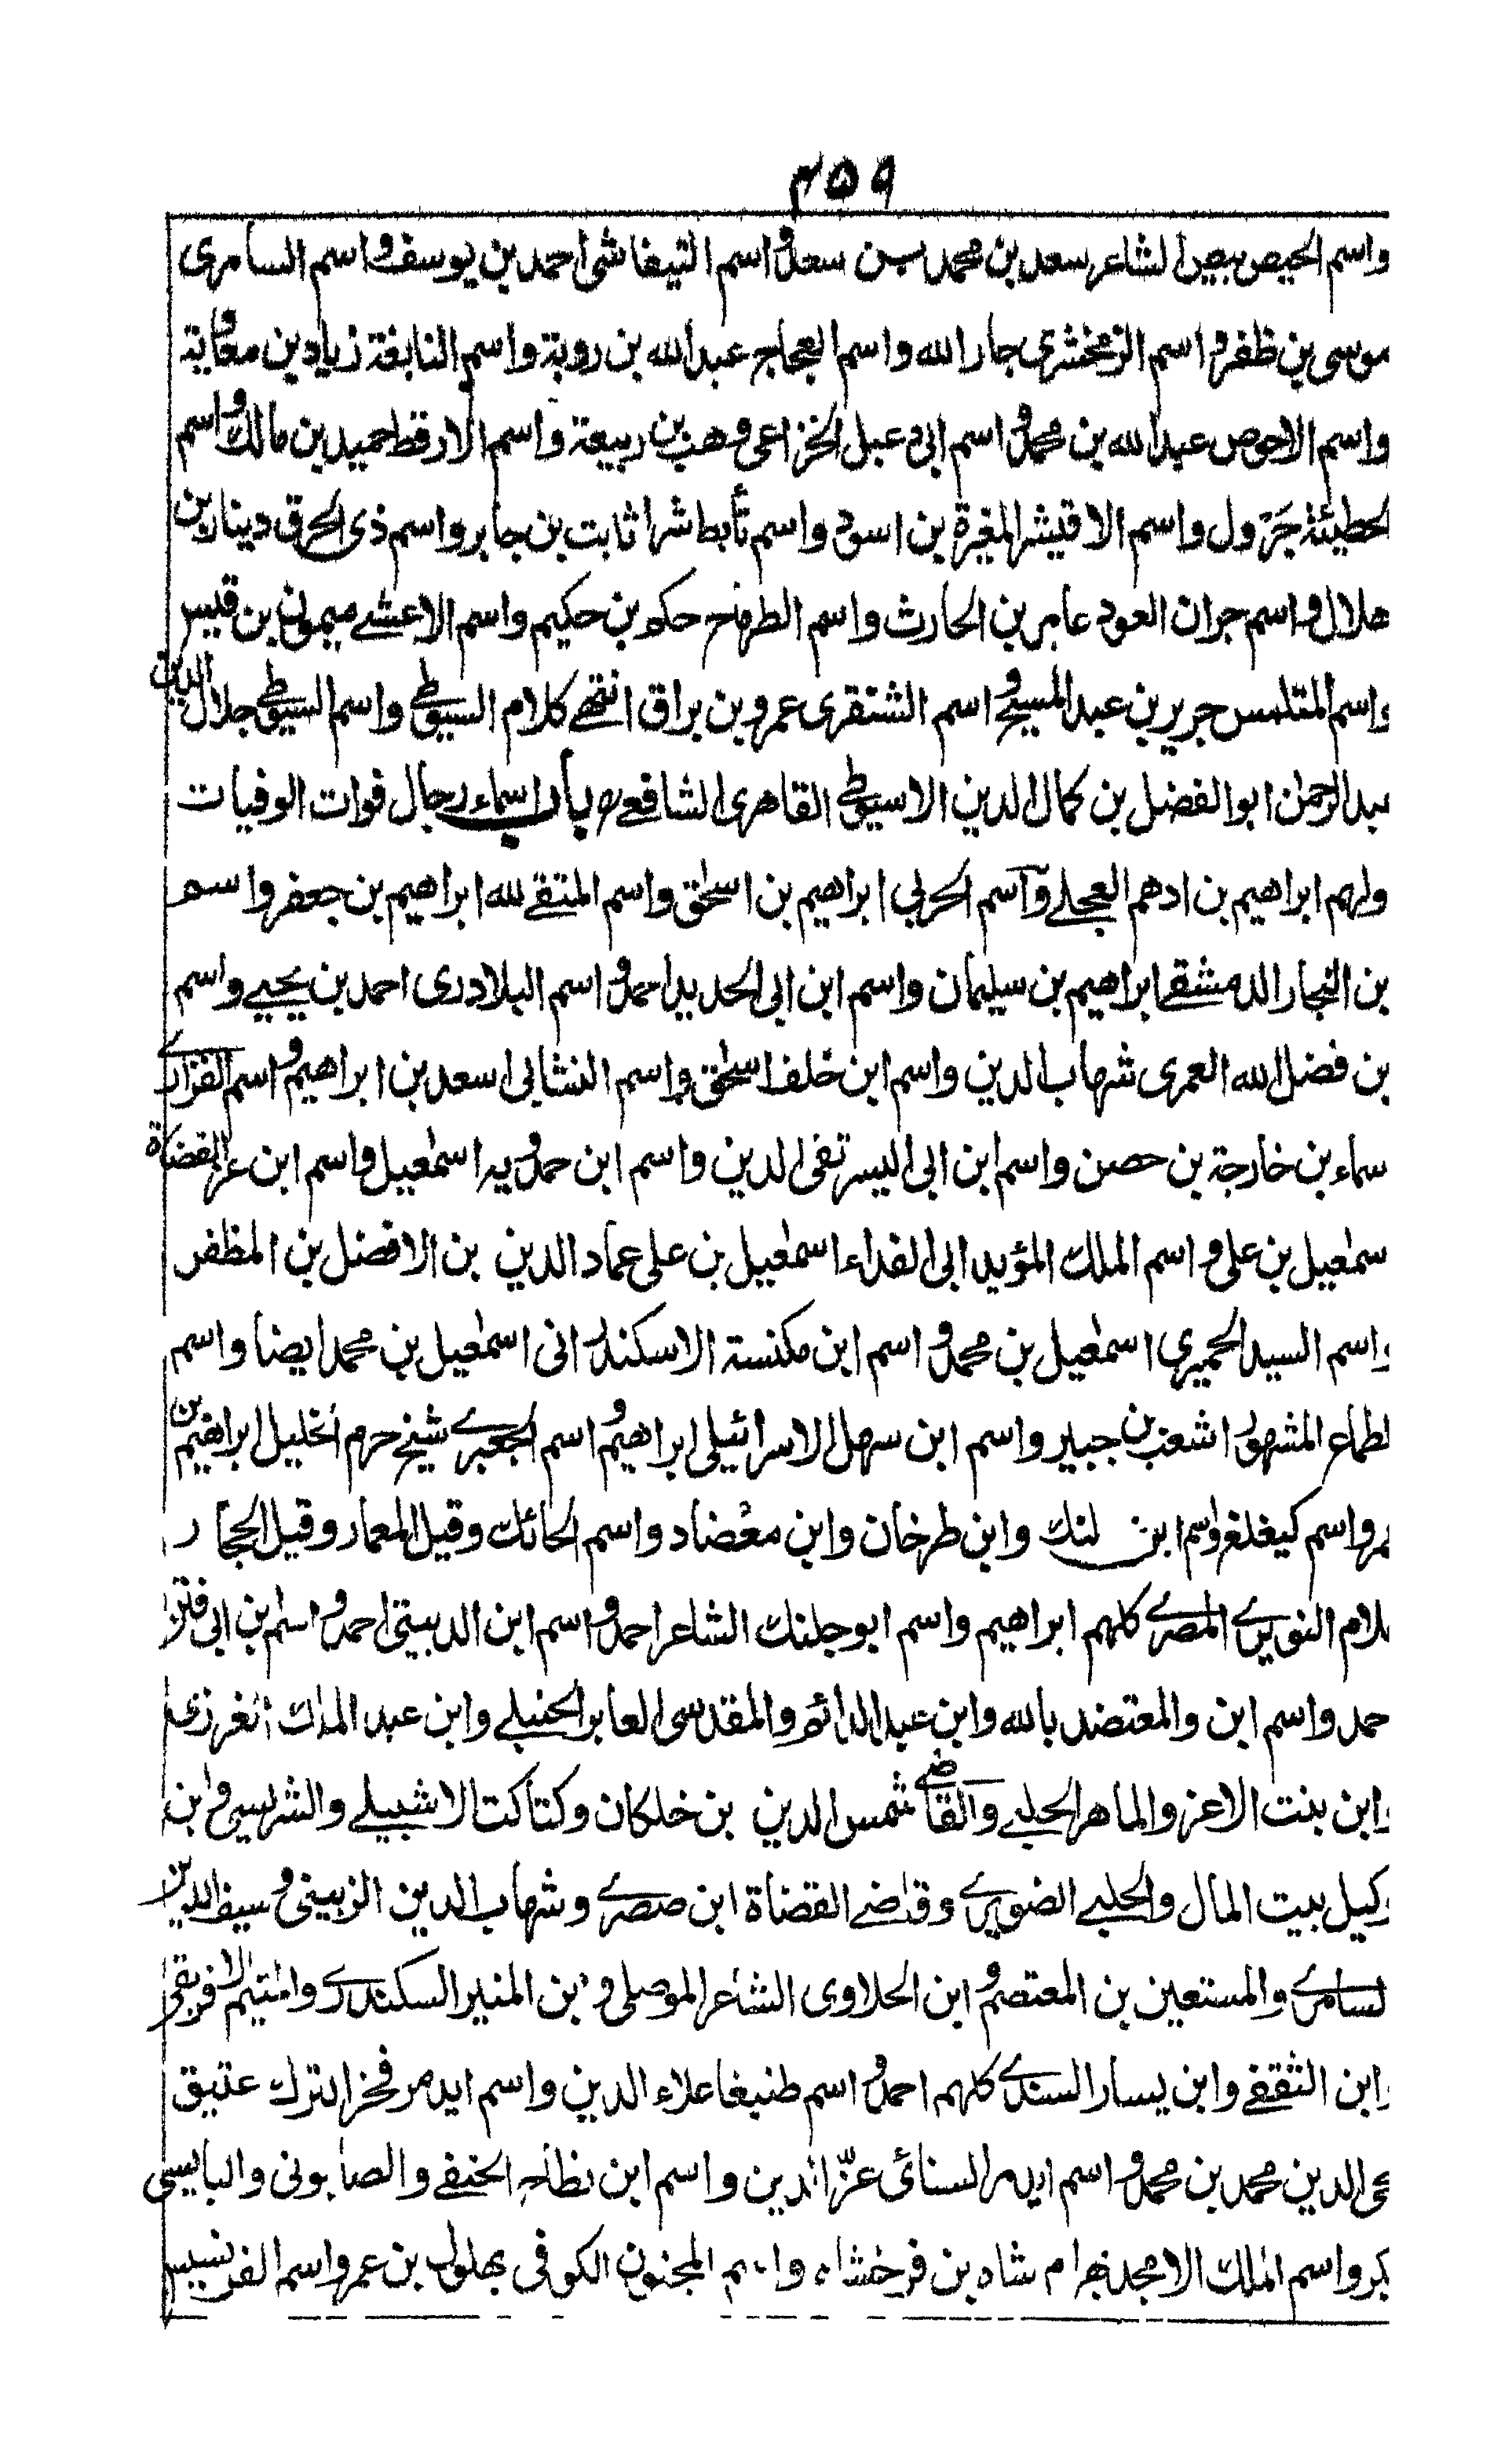 ٣٥٩
واسم الحيص بيص الشاعر سعد بن محمد بن سعد واسم التيفاشى احمد بن يوسف واسم السامرى
موسى بن ظفر واسم الزمخشرى جار الله واسم العجاج عبد الله بن روبة واسم النابغة زياد بن معاوية
واسم الاحوص عبد الله بن محمد واسم ابى دعبل الخزاعى وهب بن ربيعة واسم الارقط حميد بن مالك واسم
لحطيئة جَرْول واسم الاقيشر المغيرة بن اسود واسم تأبط شرا ثابت بن جابر واسم ذى الخرق دينار بن
هلال واسم جران العود عامر بن الحارث واسم الطرماح حكم بن حكيم واسم الاعشے ميمون بن قيس
واسم المتلمس جرير بن عبد المسيح واسم الشنفرى عمرو بن براق انتهے كلام السيوطى واسم السيوطى جلال الدين
عبد الرحمٰن ابو الفضل بن كمال الدين الاسيوطى القاهرى الشافعے بيان اسماء رجال فوات الوفيات
ولهم ابراهيم بن ادهم العجلے واسم الحربى ابراهيم بن اسحٰق واسم المتقے لله ابراهيم بن جعفر واسم
بن النجار الدمشقے ابراهيم بن سليمان واسم ابن ابى الحديد احمد واسم البلاذرى احمد بن يحيے واسم
بن فضل الله العمرى شهاب الدين واسم ابن خلف اسحٰق واسم النشابى اسعد بن ابراهيم واسم الفزارے
سماء بن خارجة بن حصن واسم ابن ابى اليسر تقى الدين واسم ابن حمدويه اسمٰعيل واسم ابن عز القضاة
سمٰعيل بن على واسم الملك المؤيد ابى الفداء اسمٰعيل بن على عماد الدين بن الافضل بن المظفر
واسم السيد الحميرى اسمٰعيل بن محمد واسم ابن مكنسة الاسكندرانى اسمٰعيل بن محمد ايضا واسم
لطماع المشهور اشعب بن جبير واسم ابن سهل الاسرائيلى ابراهيم واسم الجعبرے شيخ حرم الخليل ابراهيم بن
عمر واسم كيغلغ واسم ابن لنك وابن طرخان وابن معضاد واسم الحائك وقيل المعمار وقيل الحجار
غلام النويرے المصرے كلهم ابراهيم واسم ابو جلنك الشاعر احمد واسم ابن الدبيثى احمد واسم بن ابى فنن
حمد واسم ابن والمعتضد بالله وابن عبد الدائم والمقدسى العابر الحنبلے وابن عبد الملك
وابن بنت الاعز والماهر الحلبے والقاضے شمس الدين بن خلكان وكتاكت الاشبيلے والشريسى وابن
وكيل بيت المال والحلبے الضويرے وقاضے القضاة ابن صصرے وشهاب الدين الزبينى وسيف الدين
لسامرے والمستعين بن المعتصم وابن الحلاوى الشاعر الموصلى وابن المنير السكندرے والمتيم الافريقى
وابن الثقفے وابن يسار السندے كلهم احمد واسم طنبغا علاء الدين واسم ايدمر فخر الترك عتيق
محى الدين محمد بن محمد واسم ايدمر السنائى عزّ الدين واسم ابن الحنفے والصابونى
بكر واسم الملك الامجد بهرام شاه بن فرخشاه واسم المجنون الكوفى بهلول بن عمر واسم الفرنسيس